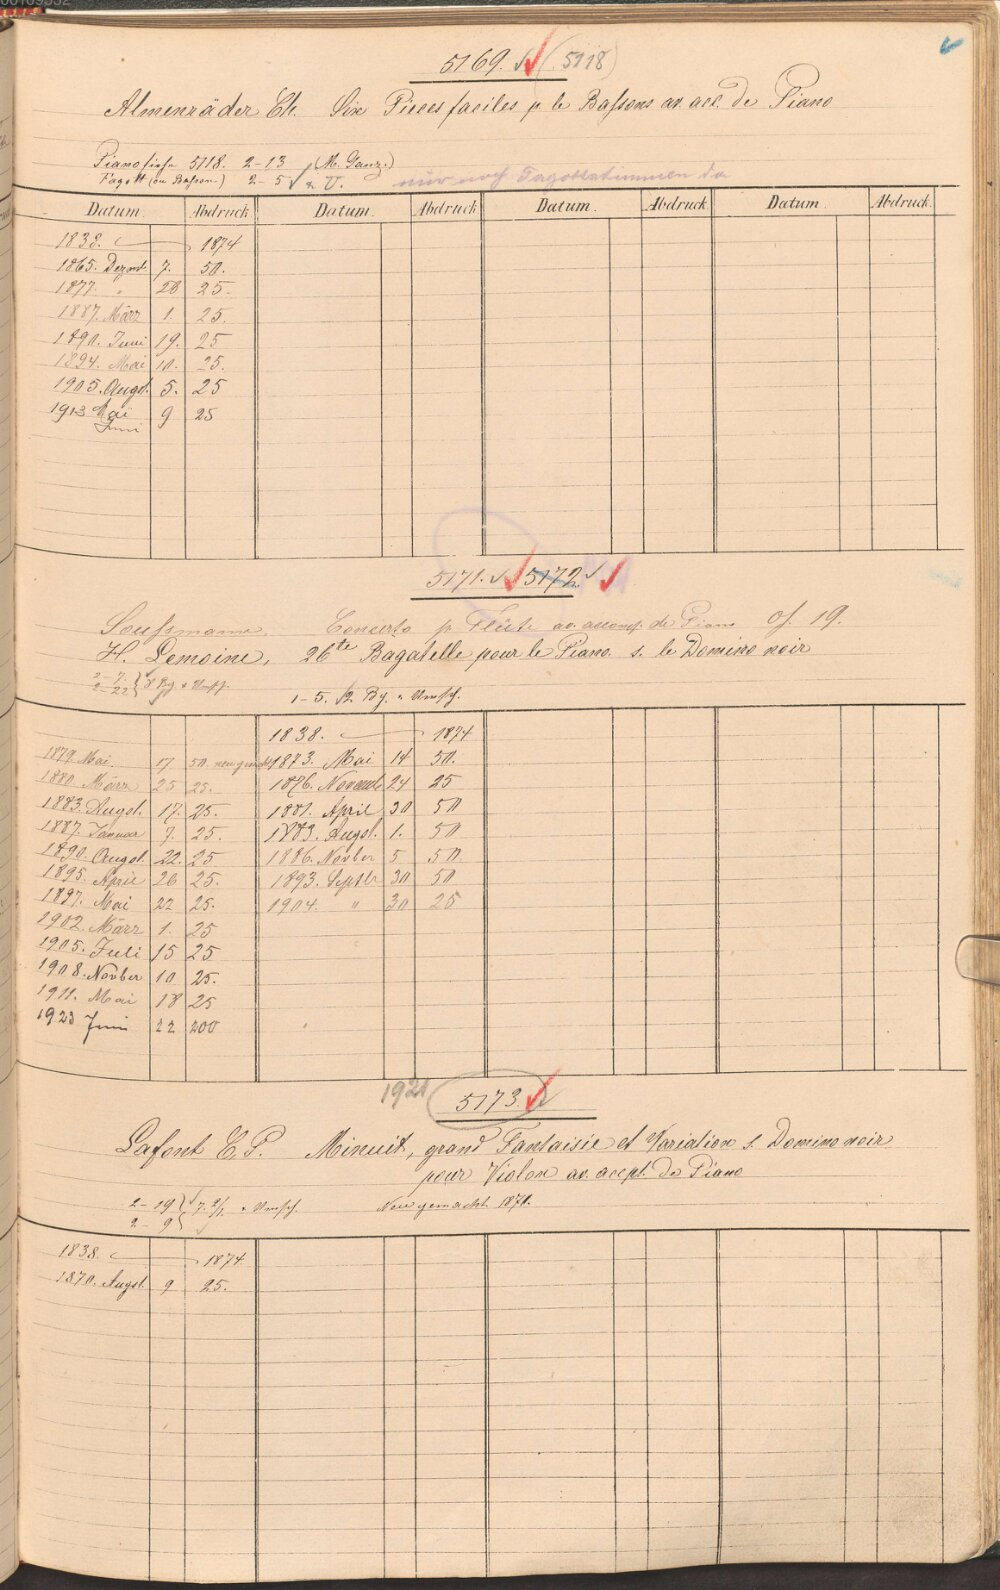 5169. (5118)
Almenräder Ch. Six Pieces faciles p. le Bassons av. acc. de Piano
Pianofirfe 5118. 2-13 (M. Ganz.)
Fagott (ou Basson.) 2-5 & U.
nur noch Fagottstimmen da
Datum. Abdruck Datum. Abdruck Datum. Abdruck Datum Abdruck
1838. 1874
1865. Dezmb. 7. 50.
1877. " 28 25.
1887. März 1. 25.
1890. Juni 19. 25
1894. Mai 10. 25.
1905. Augst. 5. 25
1913 Mai 9 25
Juni
5171. 5172
Soussmann. Concerto p. Flûte av. accomp. de Piano Op. 19.
H. Lemoine, 26te Bagatelle pour le Piano s. le Domino noir
2-7.
2-22 8 Bg. & Umsch.
1-5. 2 Bg. & Umsch.
1838. 1874
1879. Mai. 17 50. neu gemcht 1873. Mai 14 50.
1880. März 25 25. 1876. Novemb 24 25
1883. Augst. 17. 25. 1881. April 30 50
1887. Januar 7. 25. 1883. Augst. 1. 50
1890. Augst. 22. 25 1886. Novber 5 50.
1895. April 26 25. 1893. Septbr 30 50
1897. Mai 22 25. 1904. " 30 25
1902. März 1. 25
1905. Juli 15 25
1908. Novber 10 25.
1911. Mai 18 25
1923 Juni 22 200
1921 5173.
Lafont C. P. Minuit, grand Fantaisie et Variation s. Domino noir
pour Violon av. accpt. de Piano
2-19 7. 2/1. & Umsch. Neu gemacht 1870.
2-9
1838. 1874
1870. Augst. 9 25.